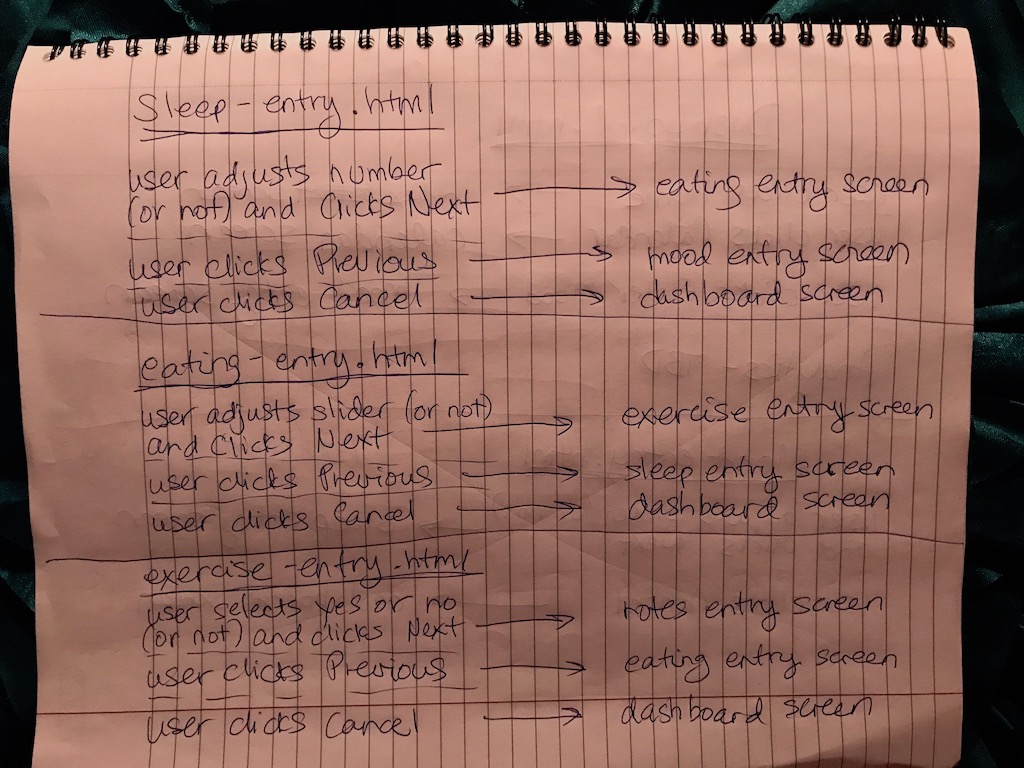 Sleep-entry.html
user adjusts number
(or not) and Clicks Next → eating entry screen
user clicks Previous → mood entry screen
user clicks Cancel → dashboard screen
eating-entry.html
user adjusts slider (or not) → exercise entry screen
and Clicks Next
user clicks Previous → sleep entry screen
user clicks Cancel → dashboard screen
exercise-entry.html
user selects yes or no → notes entry screen
(or not) and clicks Next
user clicks Previous → eating entry screen
user clicks Cancel → dashboard screen